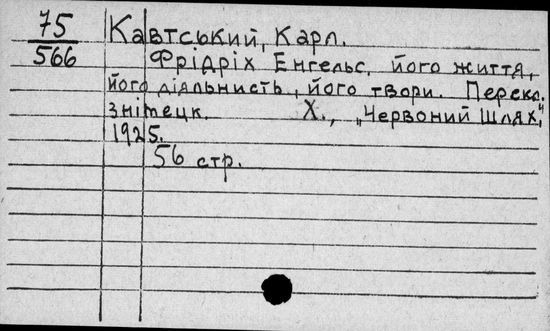 75
566
Кавтський, Карл.
Фрідріх Енгельс, його життя,
його діяльнисть, його твори. Перекл.
з німецк. Х., „Червоний Шлях",
1925.
56 стр.